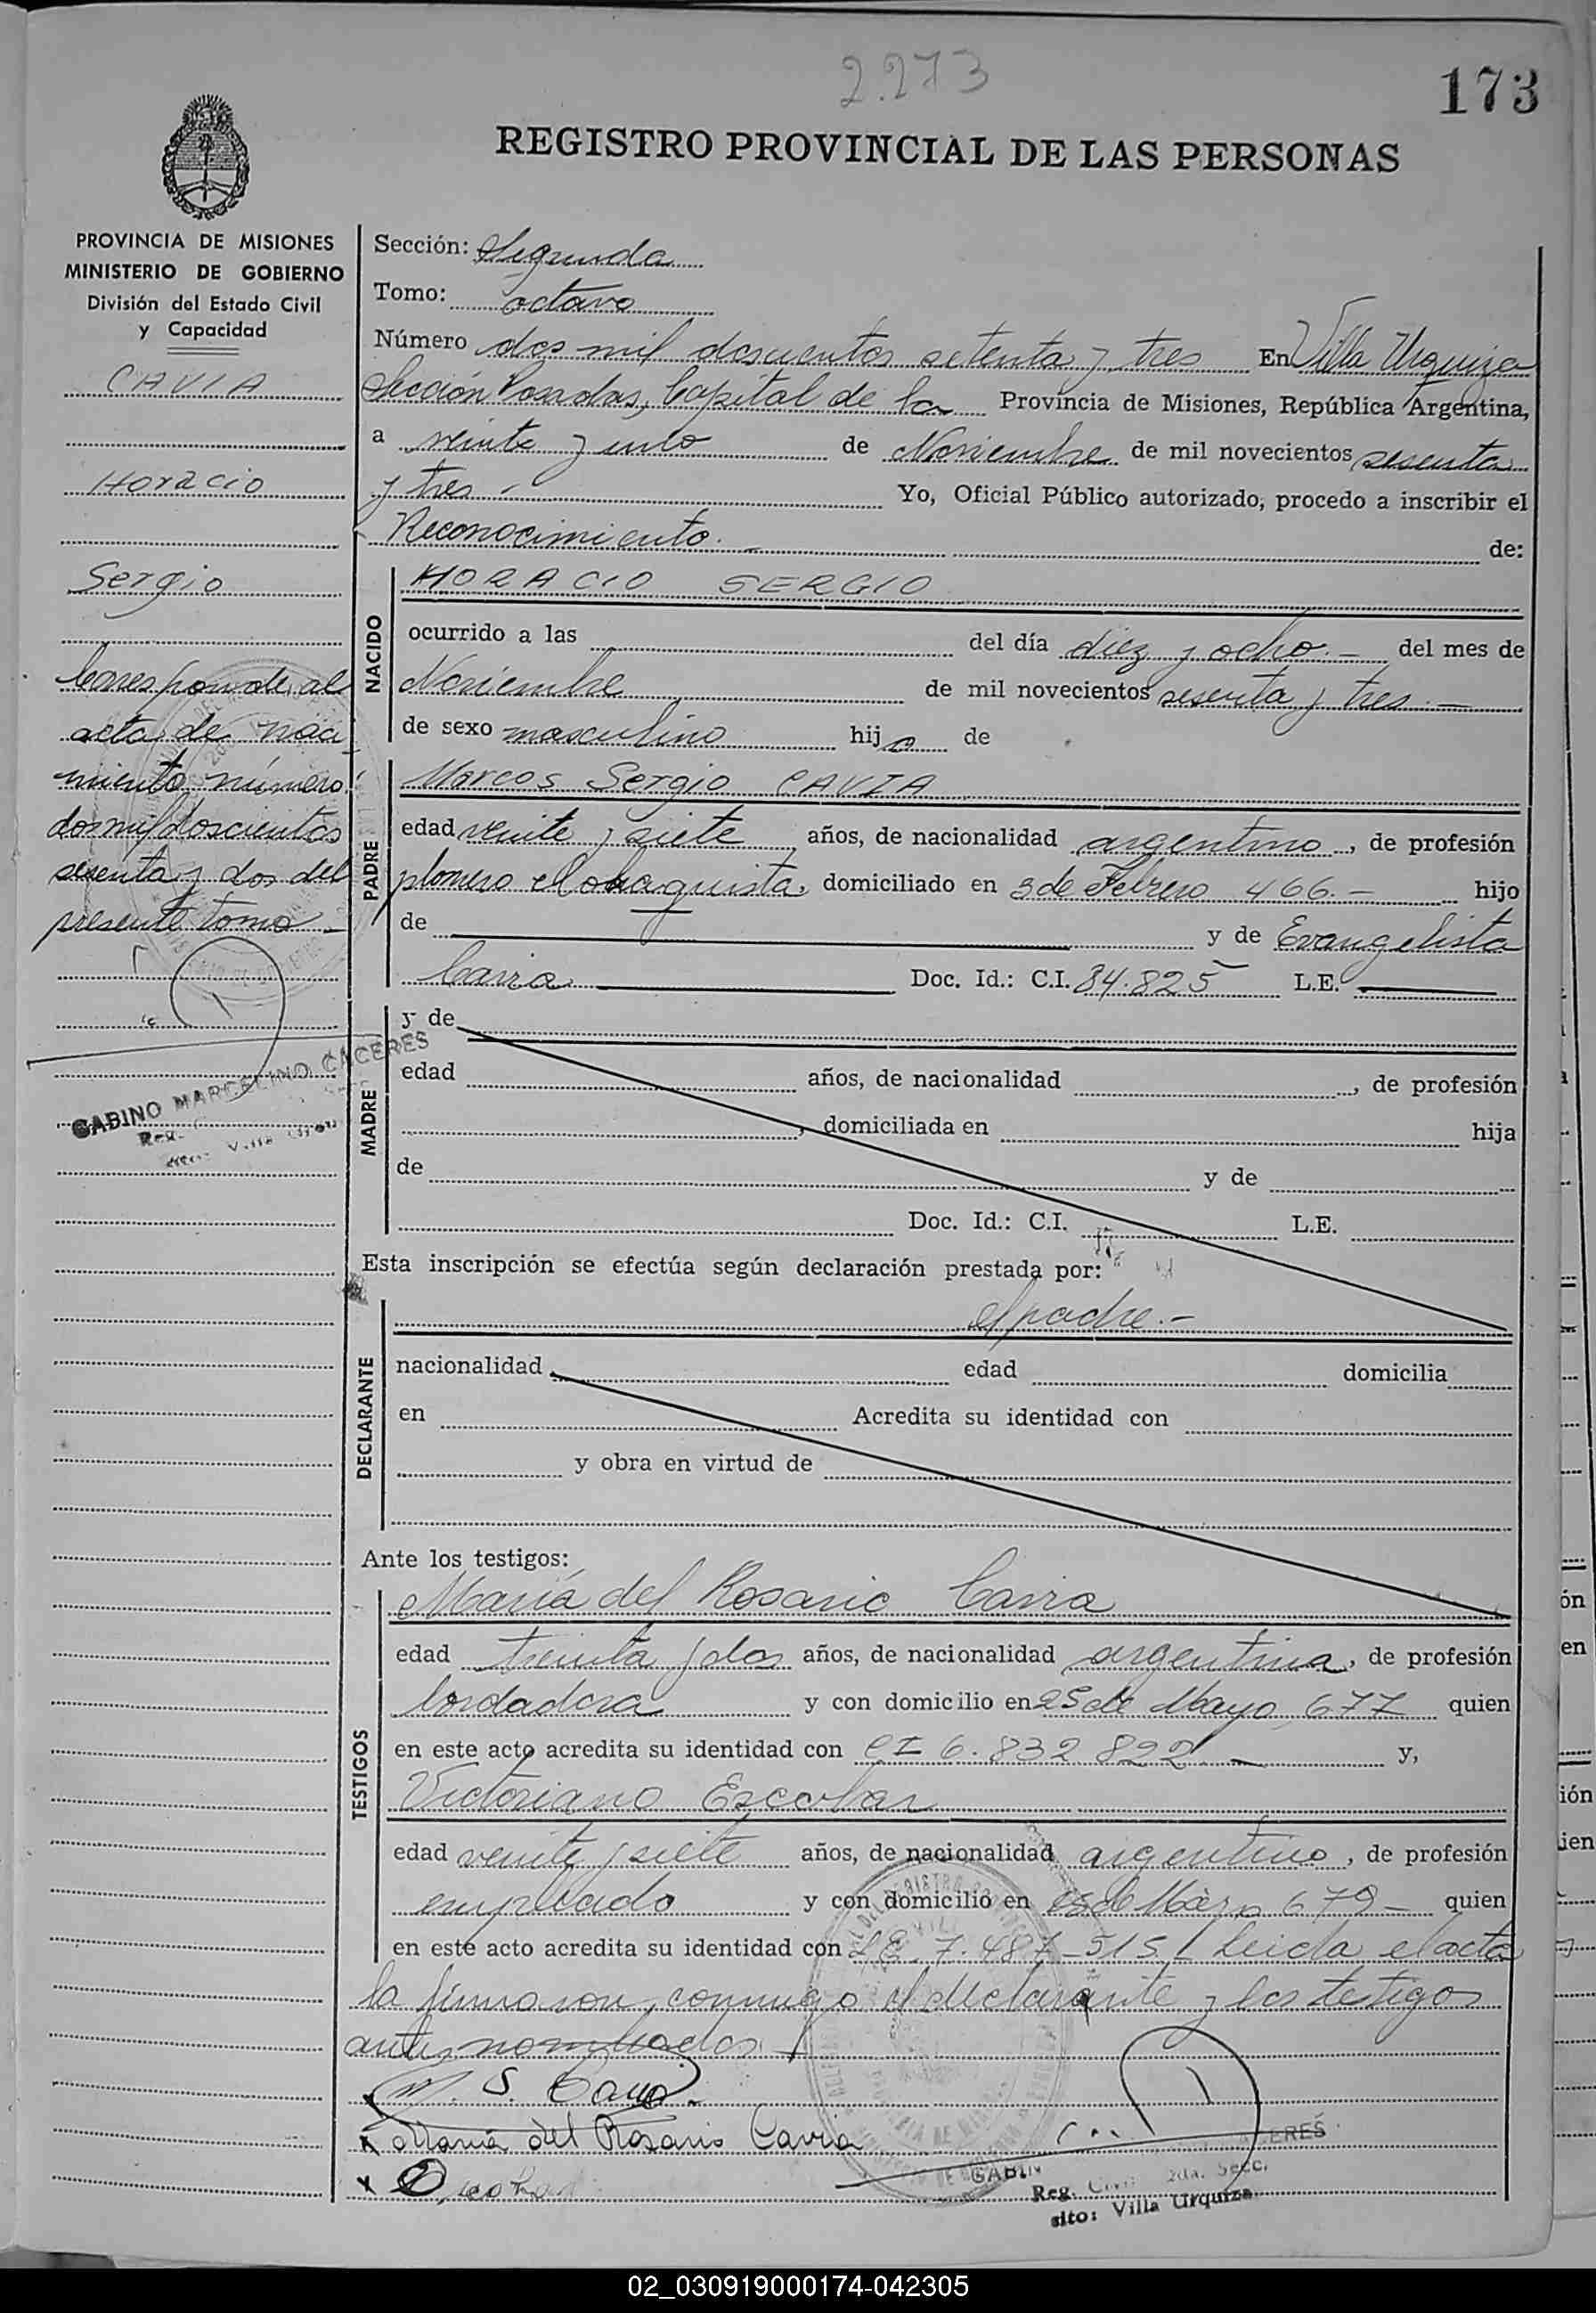 2.273
173
REGISTRO PROVINCIAL DE LAS PERSONAS
PROVINCIA DE MISIONES
MINISTERIO DE GOBIERNO
División del Estado Civil
y Capacidad
CAVIA
Horacio
Sergio
Corresponde al
acta de naci
miento número
dos mil doscientos
sesenta y dos del
presente tomo
GABINO MARCELINO CACERES
Sección: Segunda
Tomo: octavo
Número dos mil doscientos setenta y tres En Villa Urquiza
Sección Posadas, Capital de la Provincia de Misiones, República Argentina,
a veinte y de Noviembre de mil novecientos sesenta
y tres Yo, Oficial Público autorizado, procedo a inscribir el
Reconocimiento. de:
NACIDO
HORACIO SERGIO
ocurrido a las del día diez y ocho.- del mes de
Noviembre de mil novecientos sesenta y tres.-
de sexo masculino hijo de
PADRE
Marcos Sergio CAVIA
edad veinte y siete años, de nacionalidad argentino, de profesión
plomero domiciliado en 3 de Febrero 466.- hijo
de y de Evangelista
Cavia Doc. Id.: C.I. 84.825 L.E.
MADRE
y de
edad años, de nacionalidad , de profesión
, domiciliada en hija
de y de
Doc. Id.: C.I. L.E.
Esta inscripción se efectúa según declaración prestada por:
el padre.-
DECLARANTE
nacionalidad edad domicilia
en Acredita su identidad con
y obra en virtud de
Ante los testigos:
TESTIGOS
María del Rosario Cavia
edad treinta y dos años, de nacionalidad argentina, de profesión
bordadora y con domicilio en 25 de Mayo 677 quien
en este acto acredita su identidad con CI 6.832 822 y,
Victoriano Escobar
edad veinte y siete años, de nacionalidad argentino, de profesión
empleado y con domicilio en 679 quien
en este acto acredita su identidad con LE. 7.487-515/ Leida el acta
la firmaron, conmigo el declarante y los testigos
antes nombrados
M. S. Cavia
María del Rosario Cavia
Reg. Civil 2da. Secc.
sito: Villa Urquiza
02_030919000174-042305